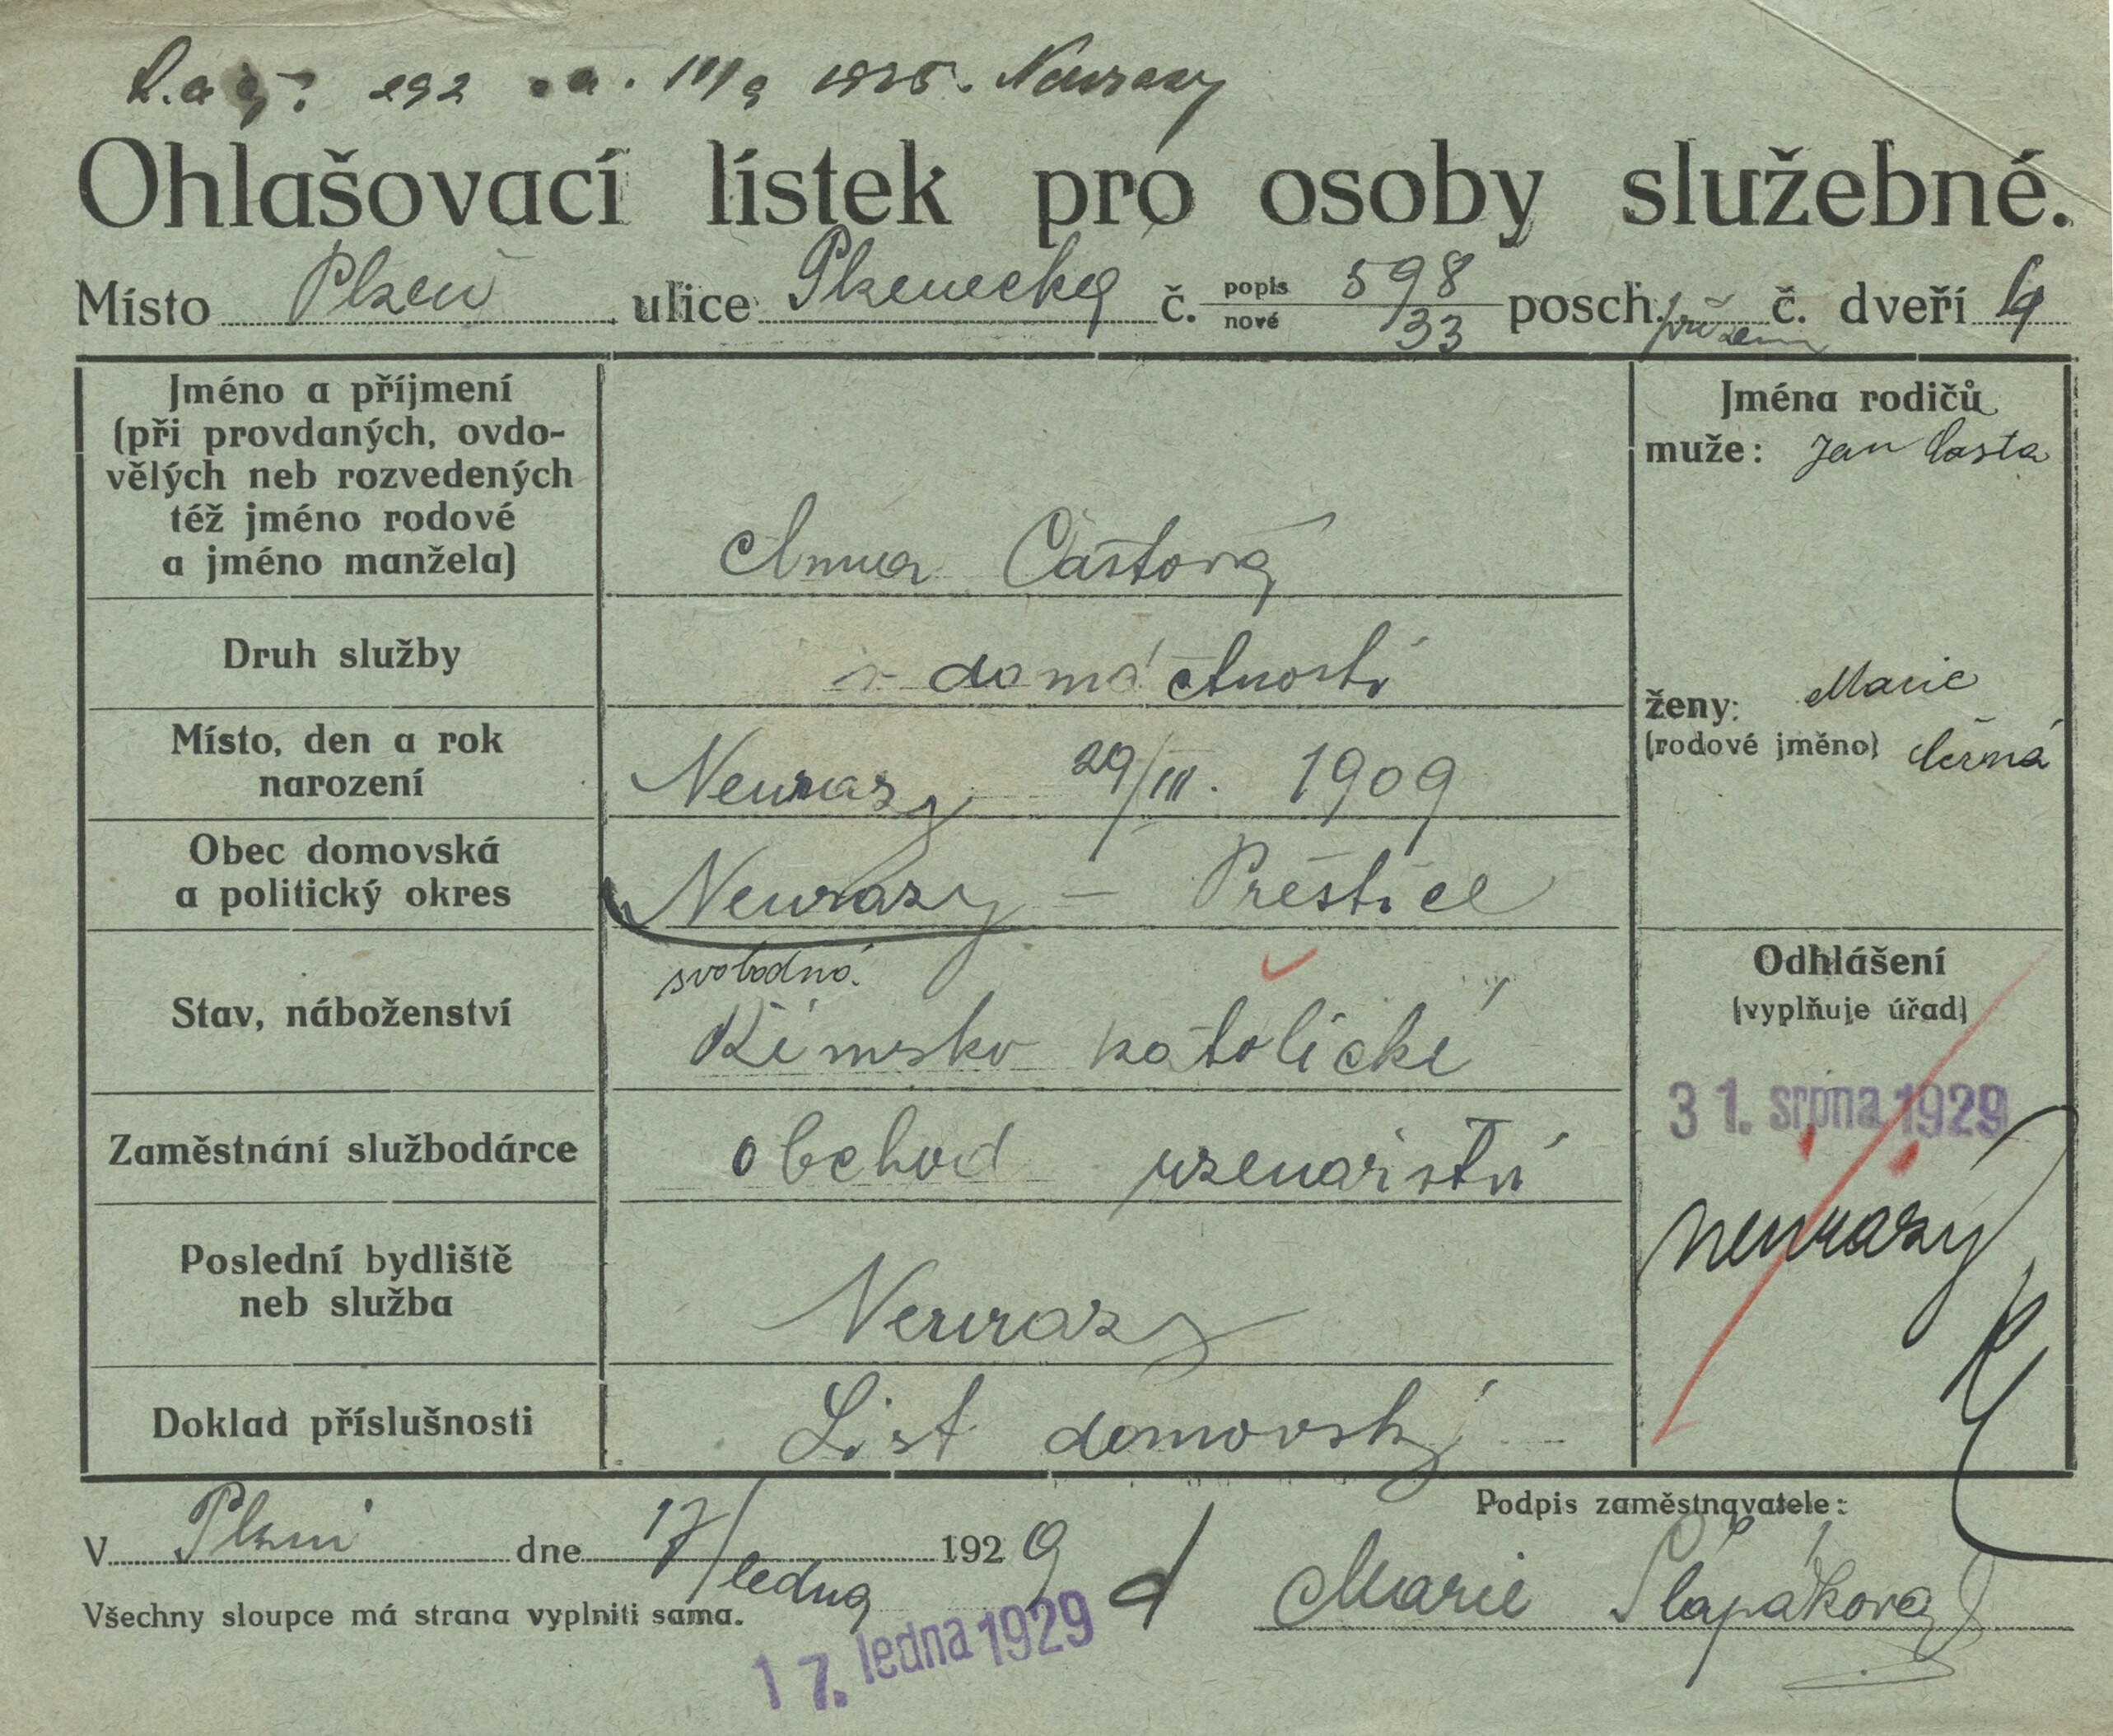 292 1925. Neurazy
Ohlašovací lístek pro osoby služebné.
Místo Plzeň ulice Plzenecká č. popis 598 posch. přízem č. dveří 4
nové 33
Jméno a příjmení
(při provdaných, ovdo-
vělých neb rozvedených
též jméno rodové
a jméno manžela)
Anna Častová
Jména rodičů
muže: Jan Časta
Druh služby
v domáctnosti
ženy: Marie
(rodové jměno) Černá
Místo, den a rok
narození
Neurazy 29/III. 1909
Obec domovská
a politický okres
Neurazy - Přeštice
Stav, náboženství
svobodná.
Římsko katolické
Odhlášení
(vyplňuje úřad)
31. srpna 1929
Neurazy
Zaměstnání službodárce
obchod uzenářství
Poslední bydliště
neb služba
Neurazy
Doklad příslušnosti
List domovský
V Plzni dne 17/ledna 1929
Podpis zaměstnavatele:
Marie Šlapáková
Všechny sloupce má strana vyplniti sama.
17. ledna 1929